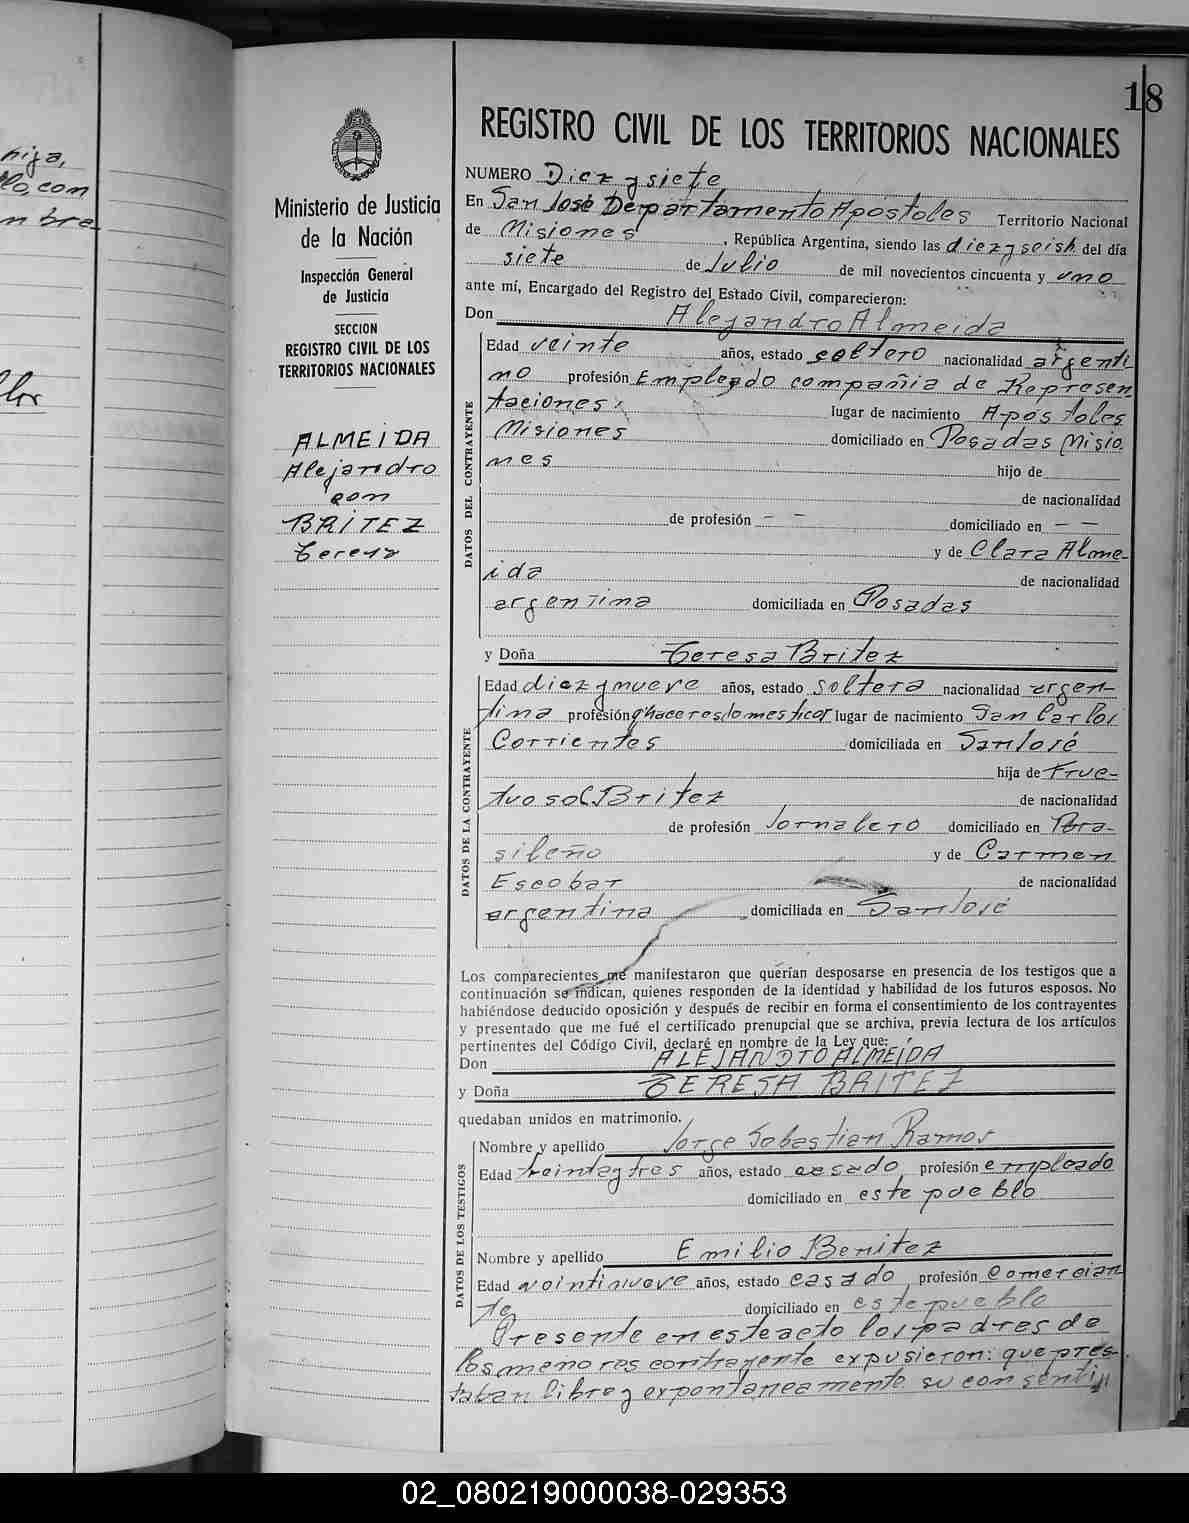 hija,
lo, con
nbre
18
REGISTRO CIVIL DE LOS TERRITORIOS NACIONALES
Ministerio de Justicia
de la Nación
Inspección General
de Justicia
SECCION
REGISTRO CIVIL DE LOS
TERRITORIOS NACIONALES
ALMEIDA
Alejandro
con
BRITEZ
Teresa
NUMERO Diez y siete
En San José Departamento Apóstoles Territorio Nacional
de Misiones, República Argentina, siendo las diez y seis h. del día
siete de Julio de mil novecientos cincuenta y uno
ante mí, Encargado del Registro del Estado Civil, comparecieron:
Don Alejandro Almeida
DATOS DEL CONTRAYENTE
Edad veinte años, estado soltero nacionalidad argenti
no profesión Empleado compañia de Represen
taciones: lugar de nacimiento Apóstoles
Misiones domiciliado en Posadas Misio
nes hijo de
de nacionalidad
de profesión — — domiciliado en — —
y de Clara Alme-
ida de nacionalidad
argentina domiciliada en Posadas
y Doña Teresa Britez
DATOS DE LA CONTRAYENTE
Edad diez y nueve años, estado soltera nacionalidad argen-
tina profesión q'haceres domesticos lugar de nacimiento San Carlos
Corrientes domiciliada en San José
hija de Fruc-
tuoso Britez de nacionalidad
de profesión Jornalero domiciliado en Bra-
sileño y de Carmen
Escobar de nacionalidad
argentina domiciliada en San José
Los comparecientes me manifestaron que querían desposarse en presencia de los testigos que a
continuación se indican, quienes responden de la identidad y habilidad de los futuros esposos. No
habiéndose deducido oposición y después de recibir en forma el consentimiento de los contrayentes
y presentado que me fué el certificado prenupcial que se archiva, previa lectura de los artículos
pertinentes del Código Civil, declaré en nombre de la Ley que:
Don ALEJANDTO ALMEIDA
y Doña TERESA BRITEZ
quedaban unidos en matrimonio.
DATOS DE LOS TESTIGOS
Nombre y apellido Jorge Sebastian Ramos
Edad treintaytres años, estado casado profesión empleado
domiciliado en este pueblo
Nombre y apellido Emilio Benitez
Edad veintinueve años, estado casado profesión comercian
te domiciliado en este pueblo
Presente en este acto los padres de
los menores contrayente expusieron: que pres-
taban libre y expontaneamente su consenti
02_080219000038-029353